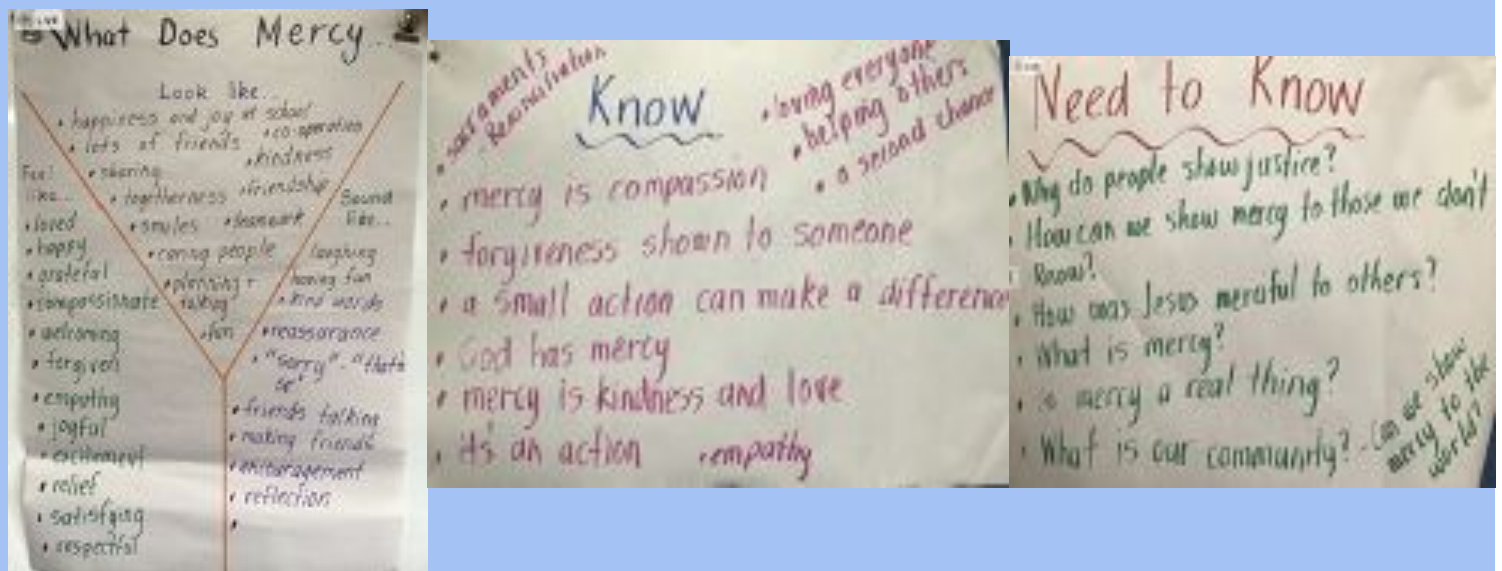 What Does Mercy...
Look like...
• happiness and joy at school
• co-operation
• lots of friends
• kindness
• sharing
• togetherness
• friendship
• smiles
• teamwork
• caring people
• planning +
talking
• fun
Feel
like...
• loved
• happy
• grateful
• compassionate
• welcoming
• forgiven
• empathy
• joyful
• excitement
• relief
• satisfying
• respectful
Sound
like...
laughing
having fun
• kind words
• reassurance
• "sorry" - "that's
• friends talking
• making friends
• encouragement
• reflection
•
Know
• sacraments
Reconciliation
• loving everyone
• helping others
• a second chance
• mercy is compassion
• forgiveness shown to someone
• a small action can make a difference
• God has mercy
• mercy is kindness and love
• it's an action
• empathy
Need to Know
• Why do people show justice?
• How can we show mercy to those we don't
know?
• How was Jesus merciful to others?
• What is mercy?
• is mercy a real thing?
• What is our community?
- Can we show
mercy to the
world?